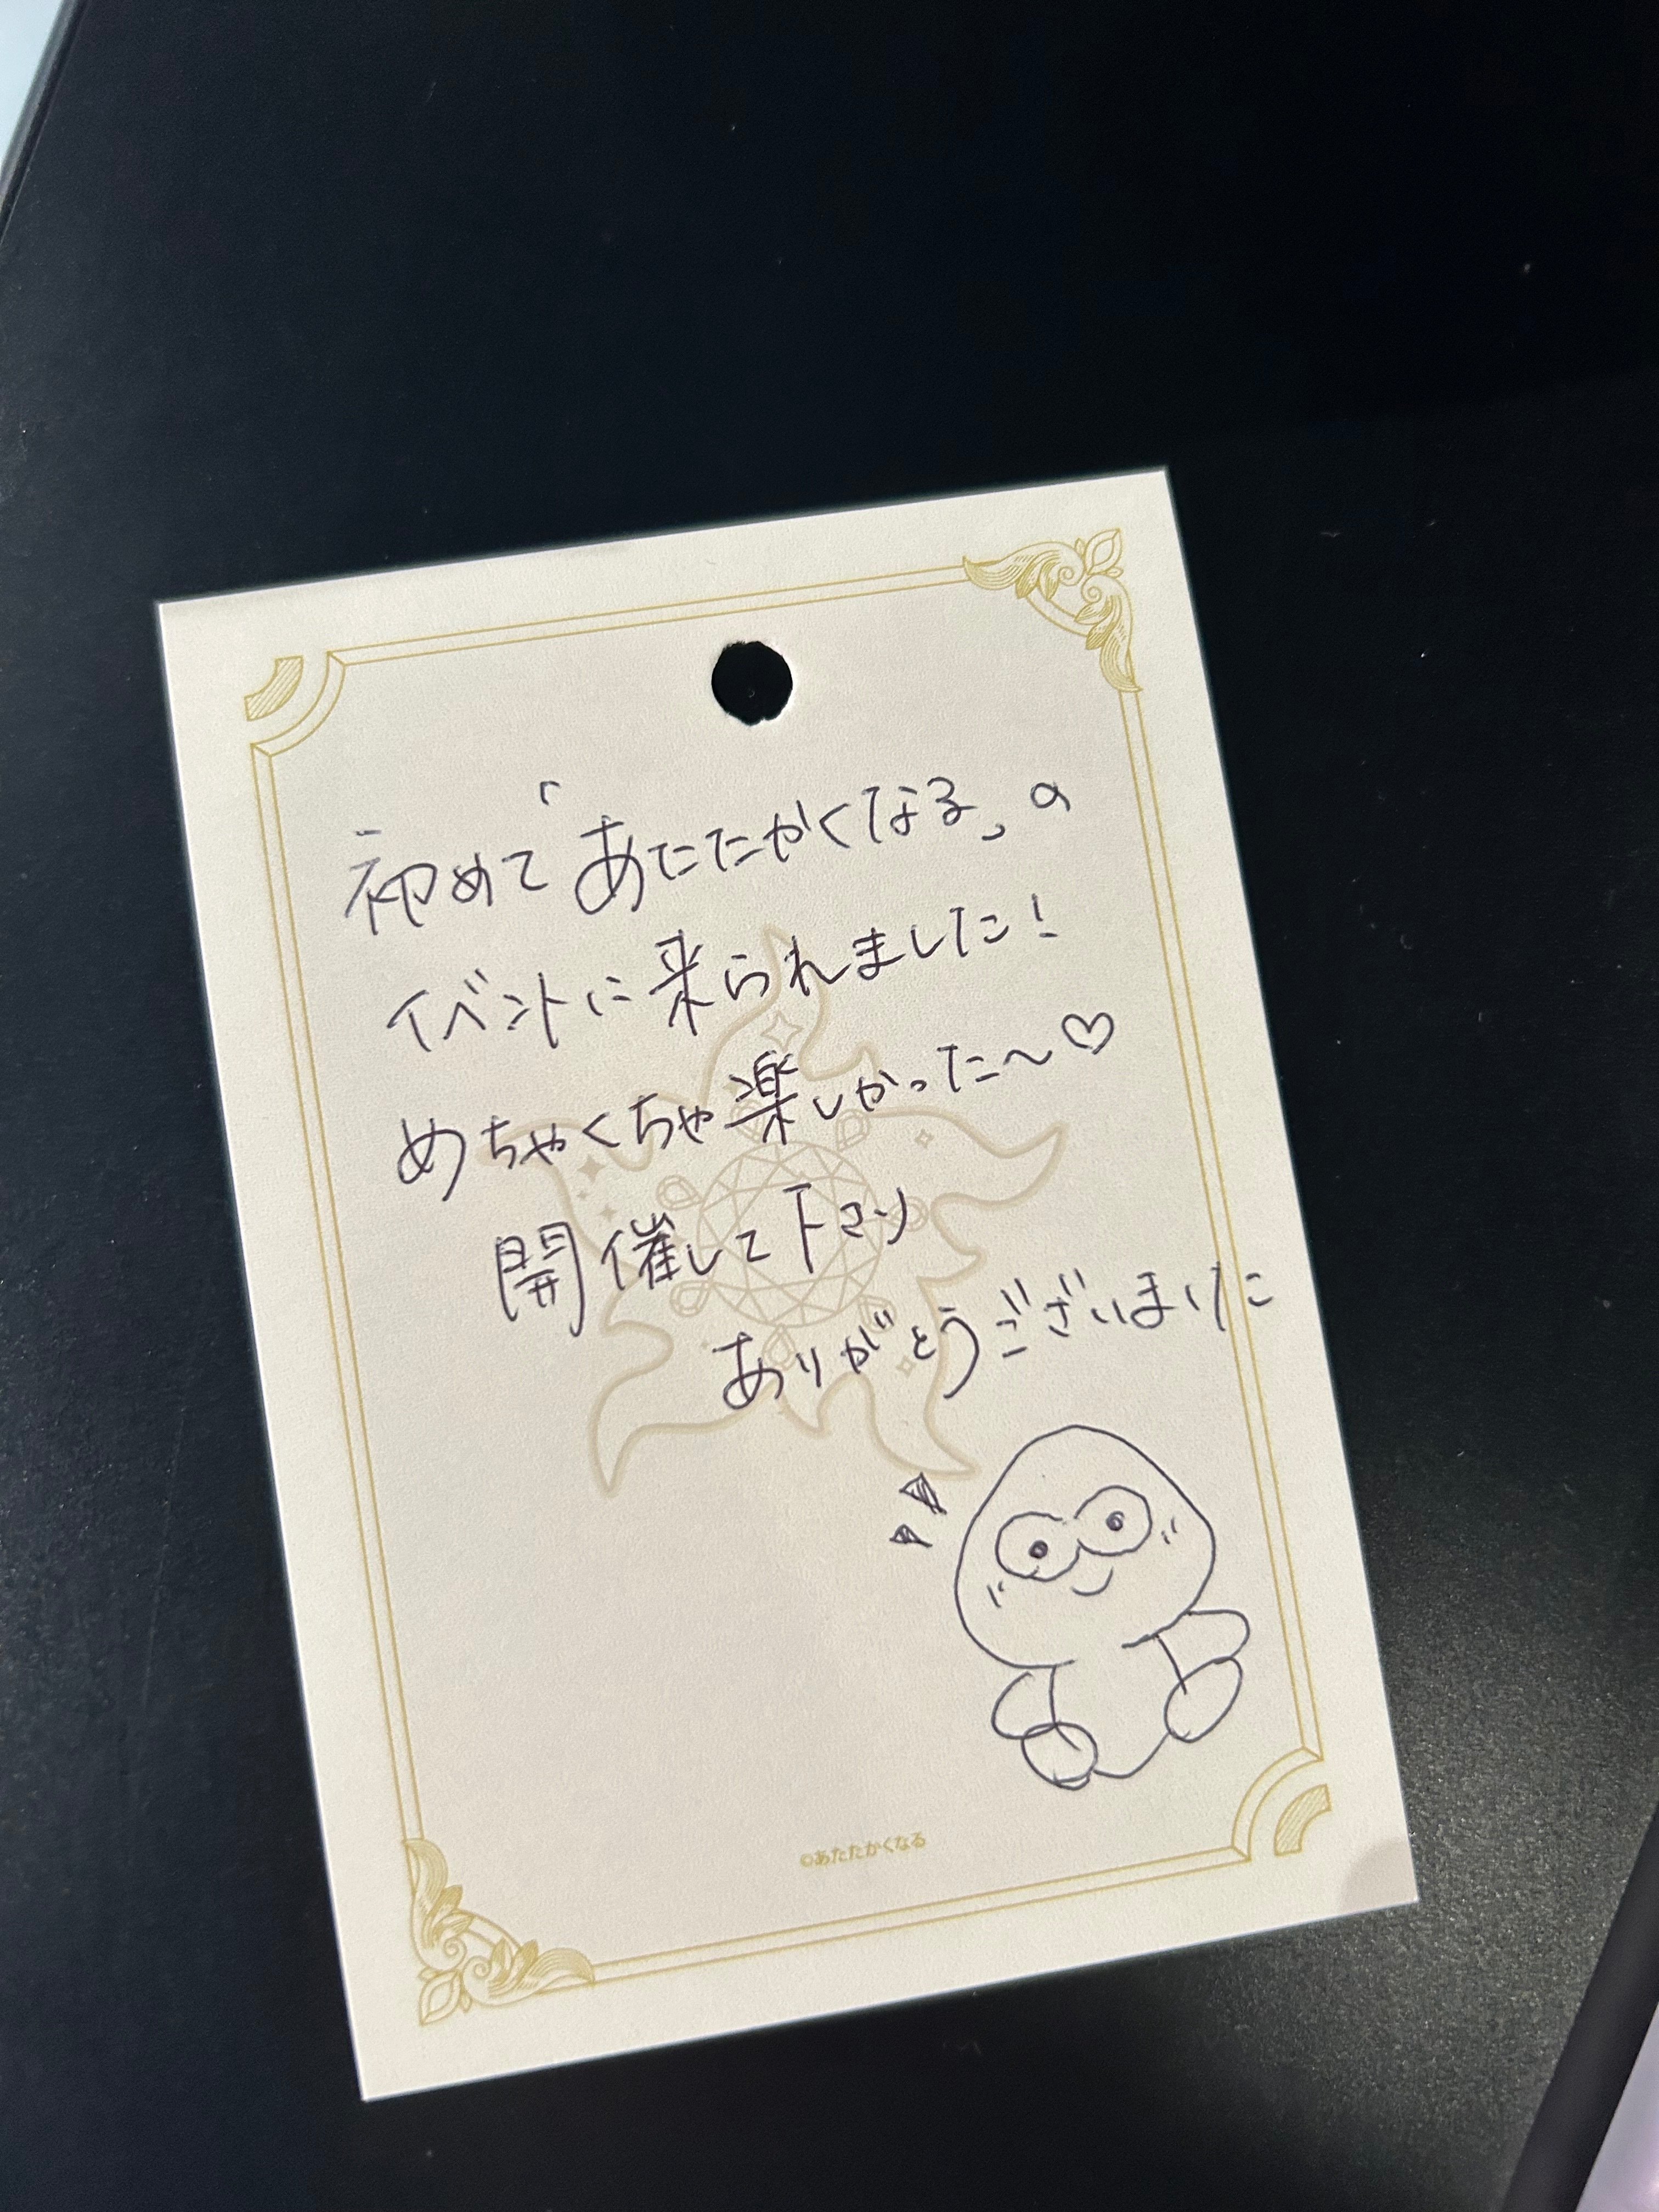 初めて「あたたかくなる」の
イベントに来られました!
めちゃくちゃ楽しかった〜♡
開催して下さり
ありがとうございました
©あたたかくなる